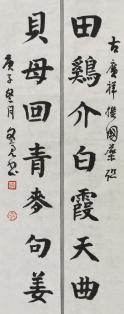 古廣祥撰國藥聯
田鷄介白霞天曲
貝母回青麥句姜
庚子冬月